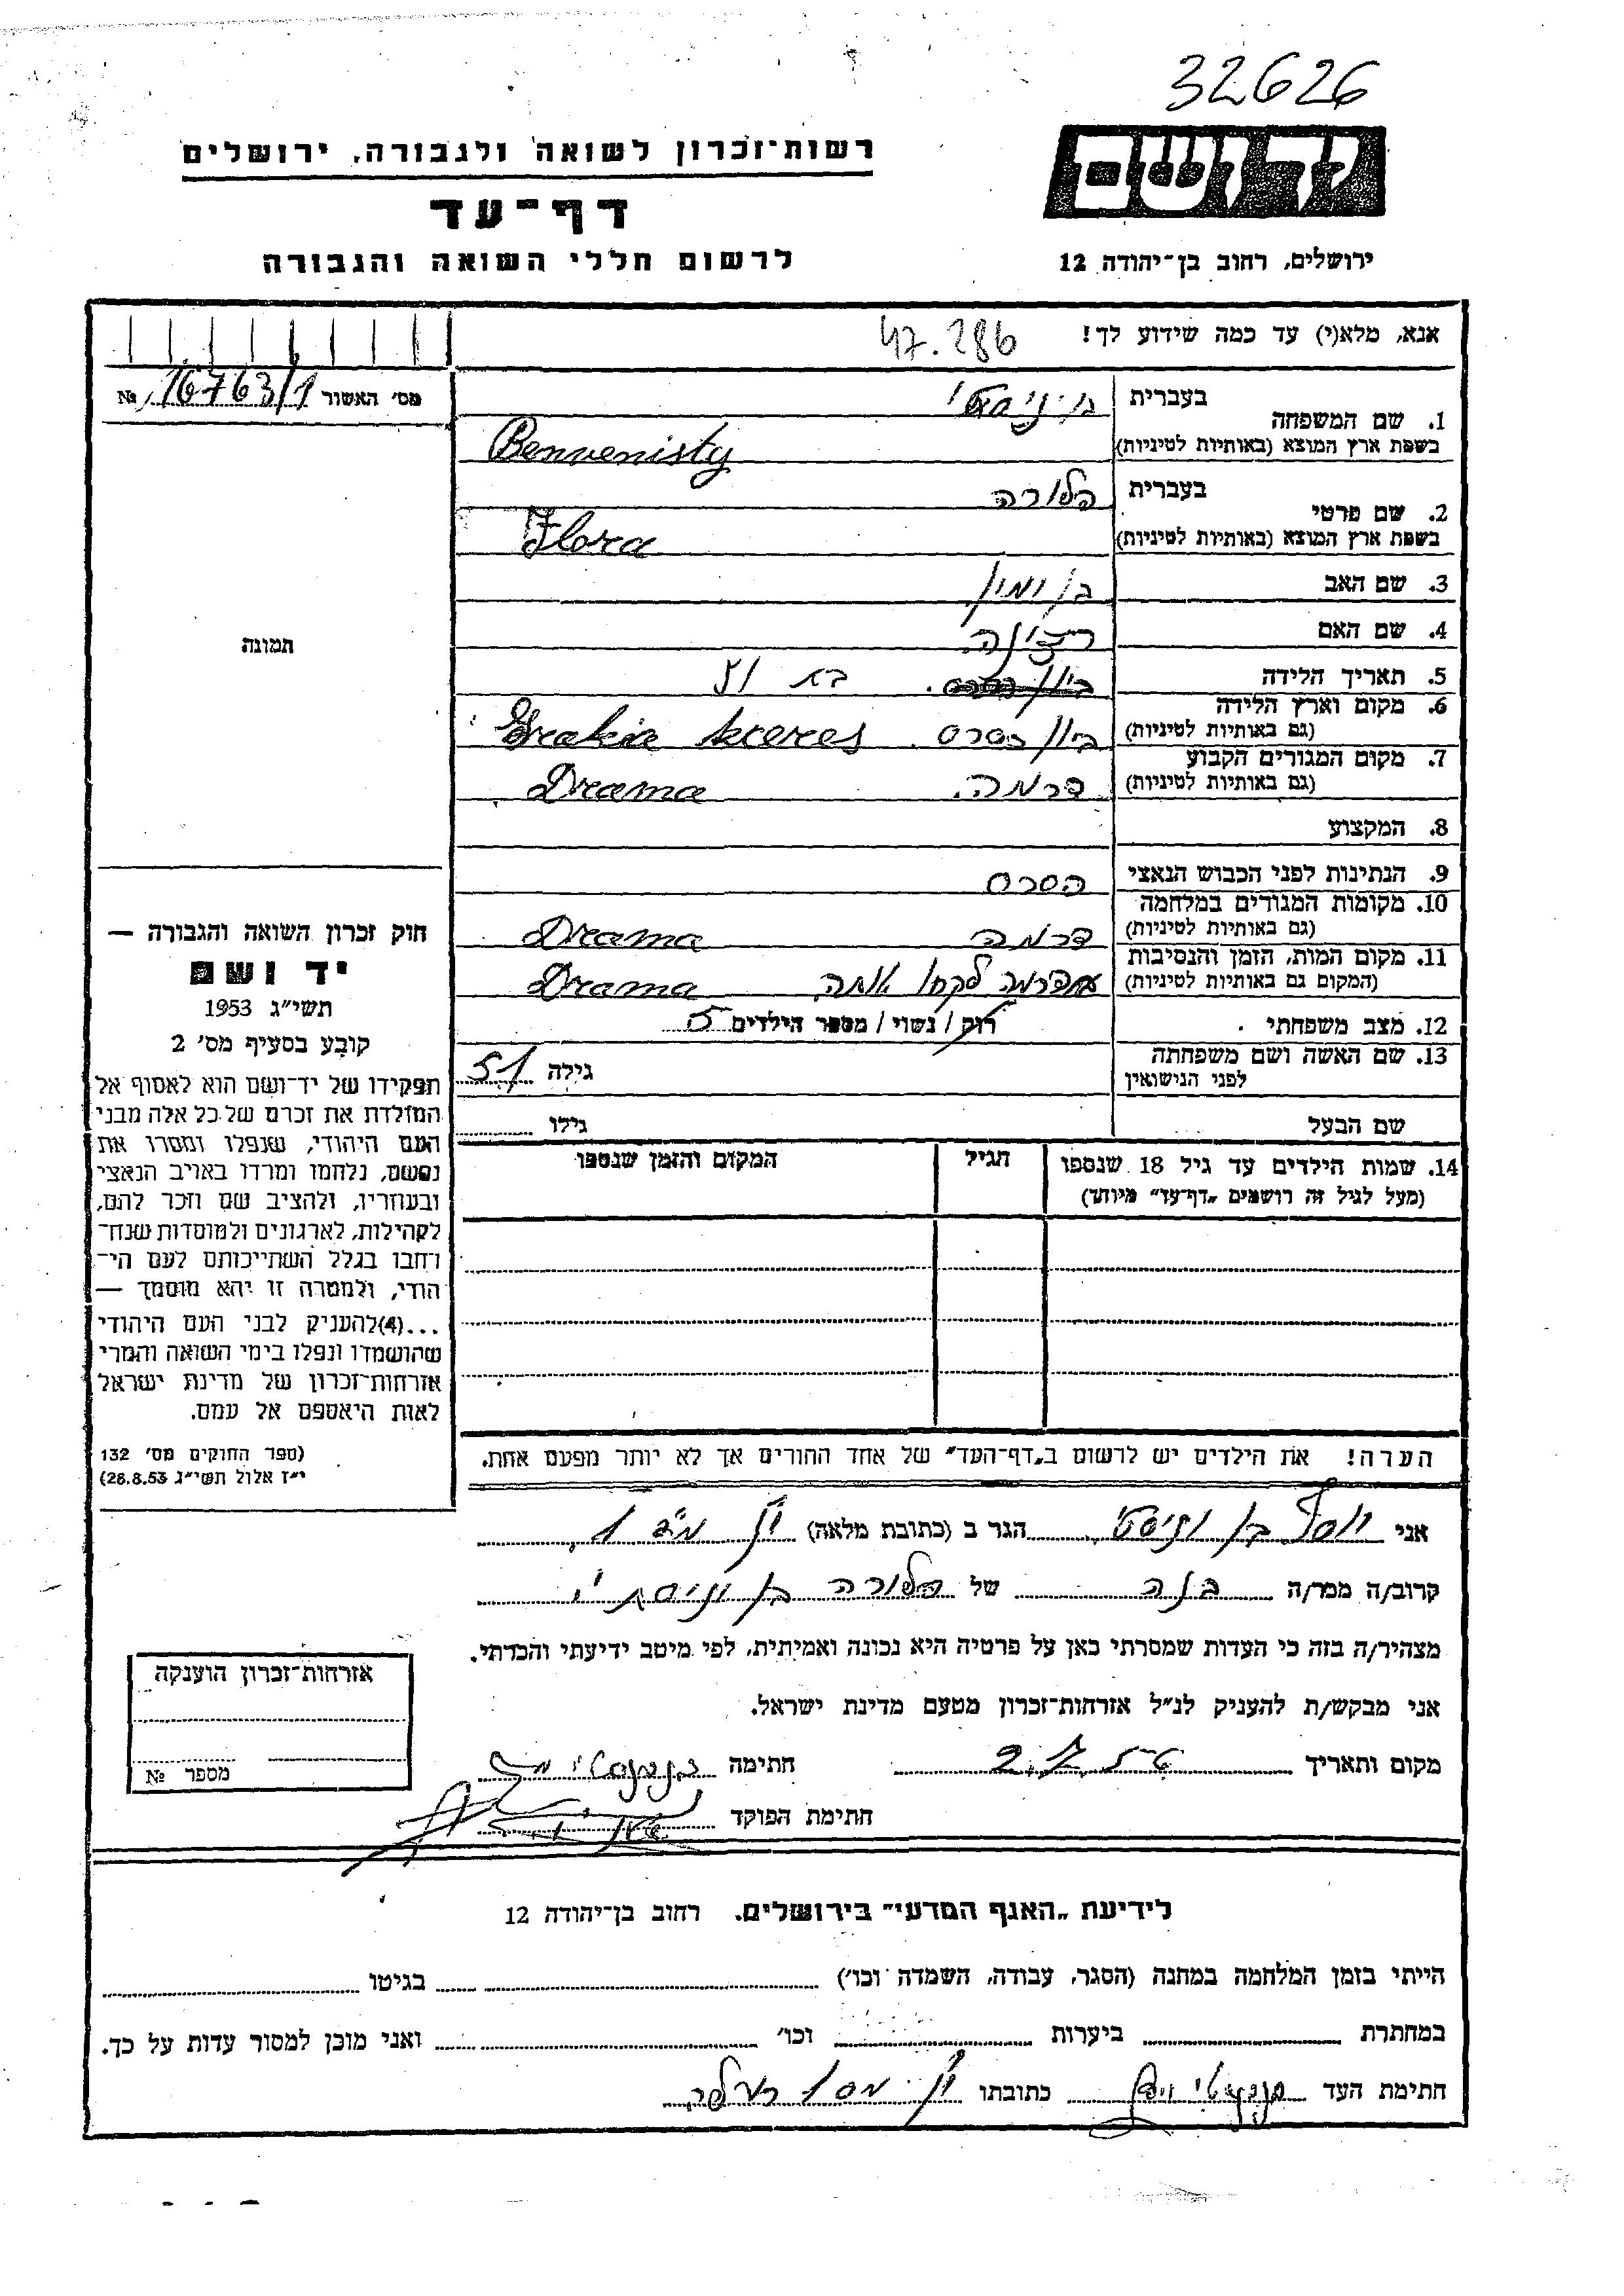 32626
רשות־זכרון לשואה ולגבורה, ירושלים
יד ושם
דף־עד
לרשום חללי השואה והגבורה
ירושלים, רחוב בן־יהודה 12
אנא, מלא(י) עד כמה שידוע לך!
47.286
מס׳ האשור № 16763/1
1. שם המשפחה
בעברית
בשפת ארץ המוצא (באותיות לטיניות) Benvenisty
2. שם פרטי
בעברית פלורה
בשפת ארץ המוצא (באותיות לטיניות) Flora
3. שם האב
4. שם האם
5. תאריך הלידה
6. מקום וארץ הלידה
(גם באותיות לטיניות) יוון
7. מקום המגורים הקבוע
(גם באותיות לטיניות) דרמה. Drama
8. המקצוע
9. הנתינות לפני הכבוש הנאצי
10. מקומות המגורים במלחמה
(גם באותיות לטיניות) דרמה Drama
11. מקום המות, הזמן והנסיבות
(המקום גם באותיות לטיניות) לקחו אותה Drama
12. מצב משפחתי רוק/ נשוי/ מספר הילדים 5
13. שם האשה ושם משפחתה
לפני הנישואין
גילה 51
שם הבעל גילו
14. שמות הילדים עד גיל 18 שנספו
(מעל לגיל זה רושמים „דף־עד״ מיוחד)
הגיל
המקום והזמן שנספו
הערה! את הילדים יש לרשום ב„דף־העד״ של אחד ההורים אך לא יותר מפעם אחת.
תמונה
חוק זכרון השואה והגבורה —
יד ושם
תשי״ג 1953
קובע בסעיף מס׳ 2
תפקידו של יד־ושם הוא לאסוף אל
המולדת את זכרם של כל אלה מבני
העם היהודי, שנפלו ומסרו את
נפשם, נלחמו ומרדו באויב הנאצי
ובעוזריו, ולהציב שם וזכר להם,
לקהילות, לארגונים ולמוסדות שנח־
רחבו בגלל השתייכותם לעם הי־
הודי, ולמטרה זו יהא מוסמך —
...(4)להעניק לבני העם היהודי
שהושמדו ונפלו בימי השואה והמרי
אזרחות־זכרון של מדינת ישראל
לאות היאספם אל עמם.
(ספר החוקים מס׳ 132
י״ז אלול תשי״ג 28.8.53)
אני יוסף בן הגר ב (כתובת מלאה)
קרוב/ה מכר/ה בנה של פלורה בן
מצהיר/ה בזה כי העדות שמסרתי כאן על פרטיה היא נכונה ואמיתית, לפי מיטב ידיעתי והכרתי.
אני מבקש/ת להעניק לנ״ל אזרחות־זכרון מטעם מדינת ישראל.
מקום ותאריך חתימה
חתימת הפוקד
אזרחות־זכרון הוענקה
מספר №
לידיעת „האגף המדעי״ בירושלים. רחוב בן־יהודה 12
הייתי בזמן המלחמה במחנה (הסגר, עבודה, השמדה וכו׳) בגיטו
במחתרת ביערות וכו׳ ואני מוכן למסור עדות על כך.
חתימת העד כתובתו